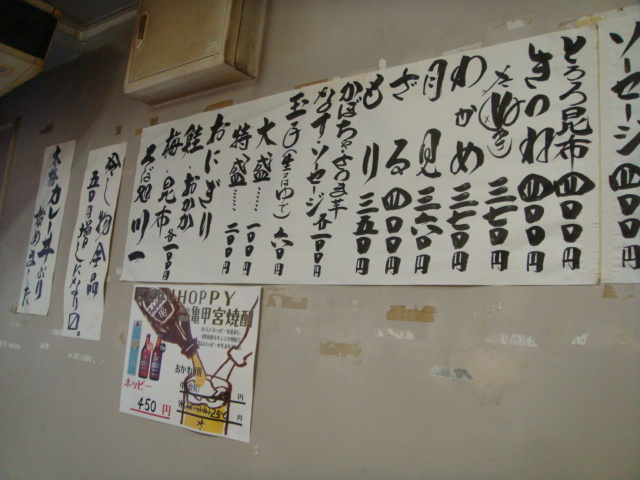 ソーセージ 四〇〇円
とろろ昆布 四〇〇円
きつね 四〇〇円
三七〇円
わかめ 三七〇円
月見 三六〇円
ざる 四〇〇円
もり 三五〇円
かぼちゃ・さつま芋
なす・ソーセージ 各一〇〇円
玉子(生又はゆで) 六〇円
大盛…… 一〇〇円
特盛…… 二〇〇円
おにぎり
鮭・おかか
梅・昆布 各一〇〇円
そば処 川一
冷し物全品
五〇円増しになります。
本格カレー丼ぶり
始めました
HOPPY
亀甲宮焼酎
おかわり
ホッピー
450円
円
250円